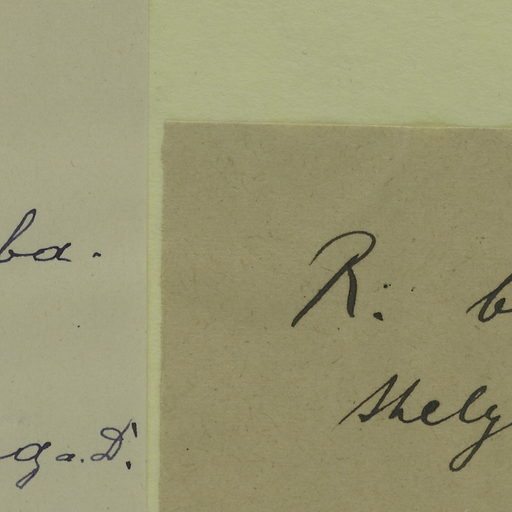 ba.
g a. D.
R: b
shely